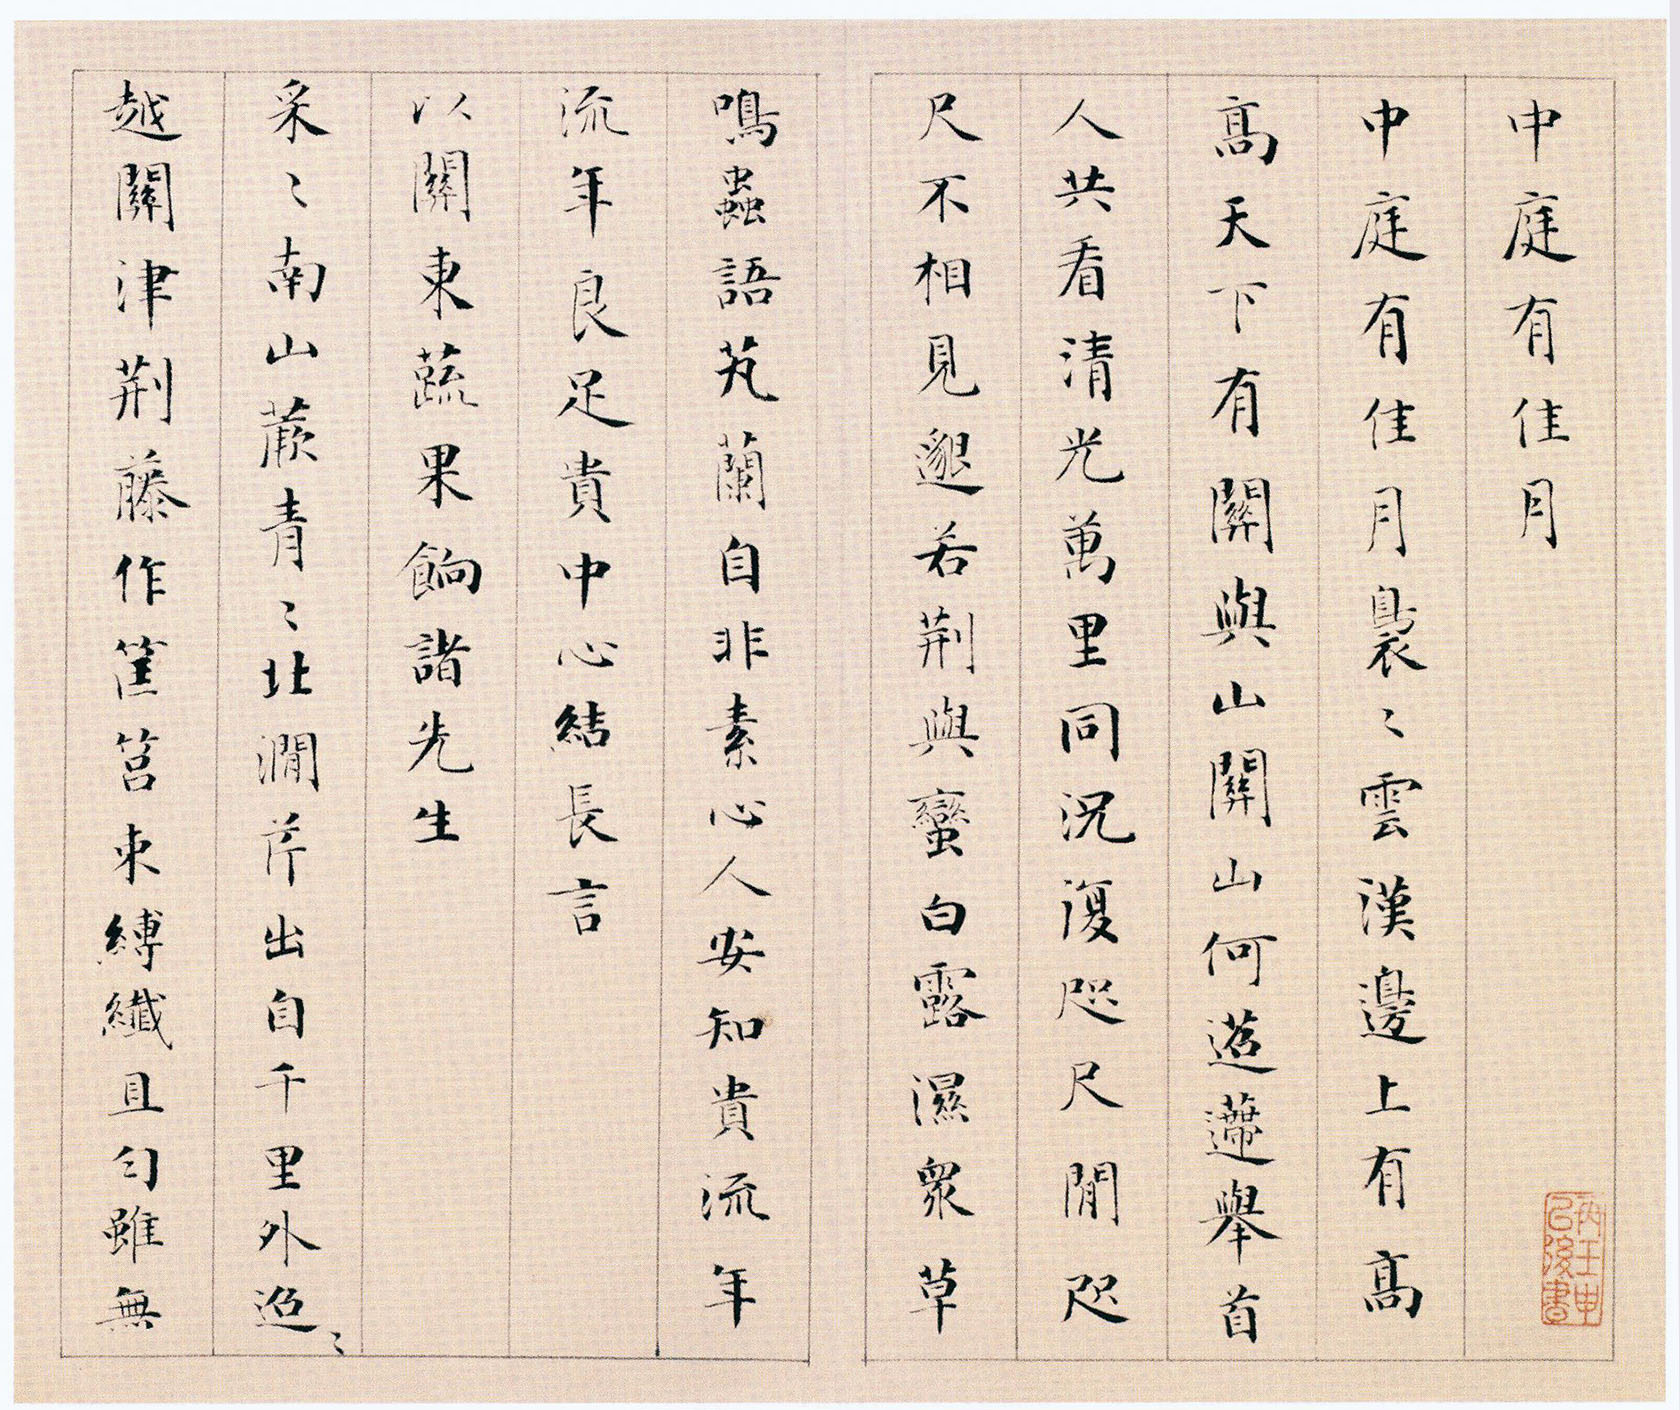 中庭有佳月
中庭有佳月裊〻雲漢邊上有高
高天下有關與山關山何迢遰舉首
人共看清光萬里同況復咫尺間咫
尺不相見邈若荆與蠻白露濕衆草
鳴蟲語芄蘭自非素心人安知貴流年
流年良足貴中心結長言
以關東蔬果餉諸先生
采〻南山蕨青〻北澗芹出自千里外迢〻
越關津荆藤作筐筥束縛纖且勻雖無